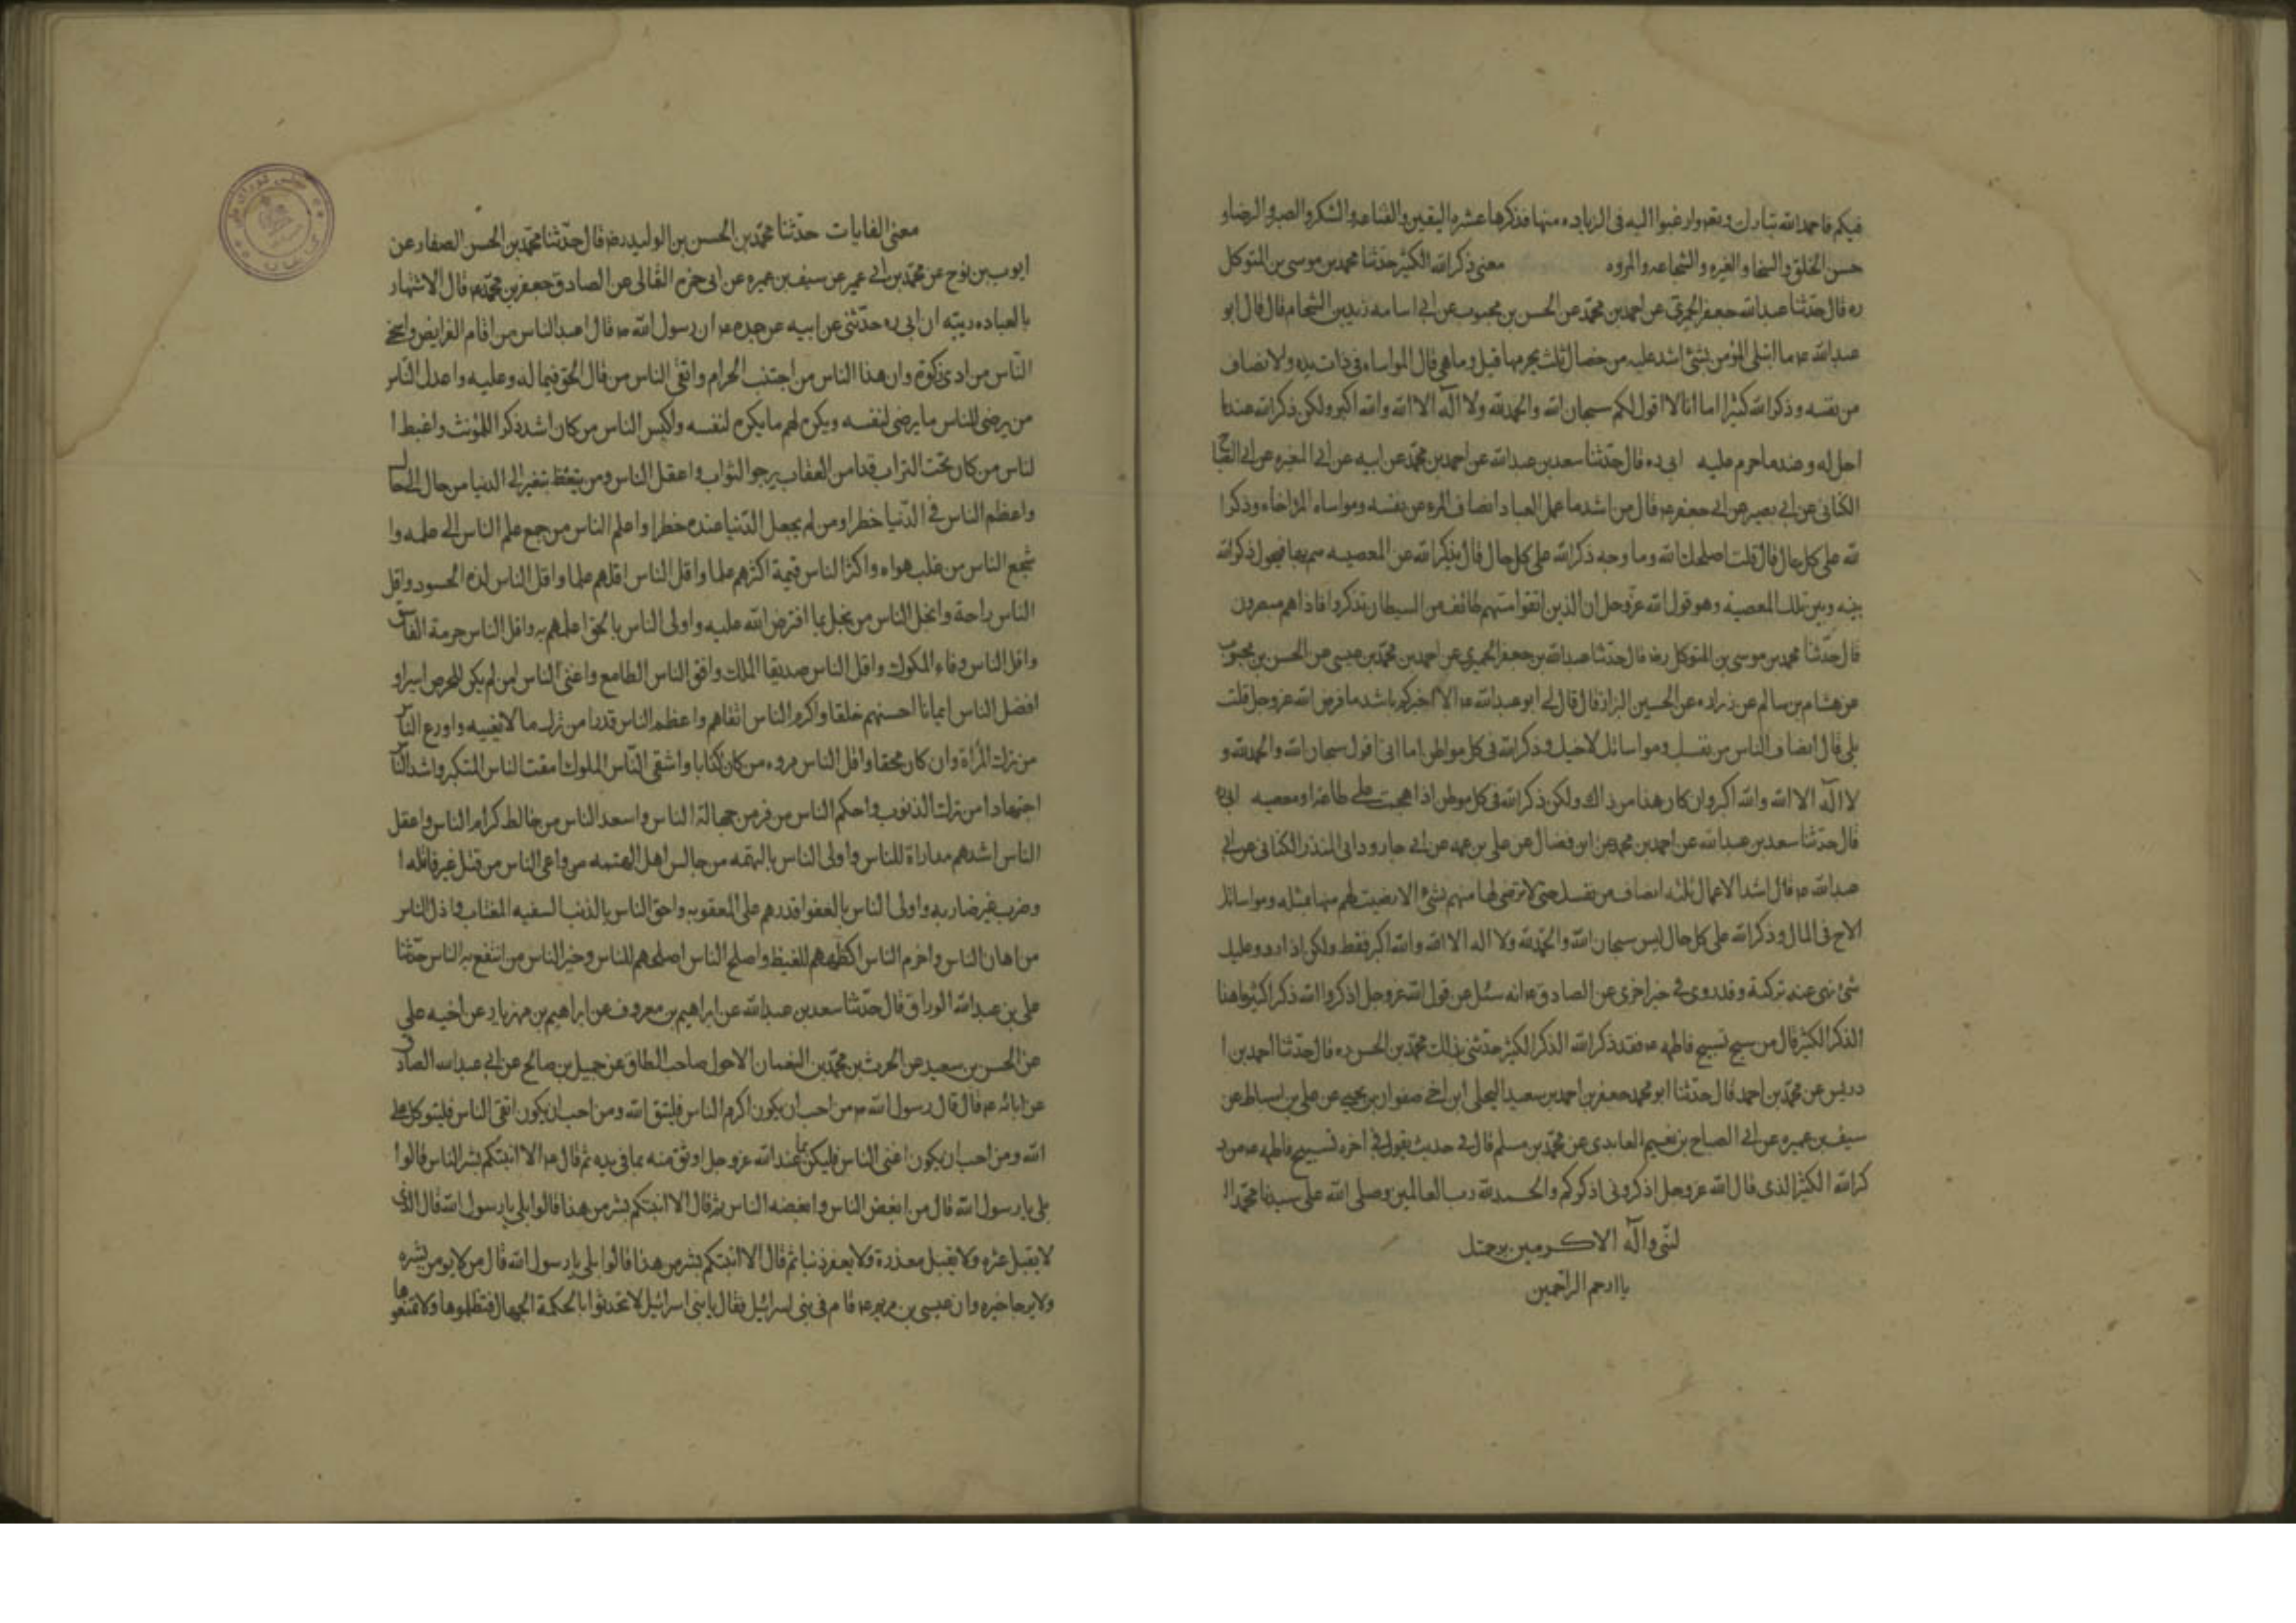 فيكم فاحمد الله تبارك وتعه وارغبوا اليه فى الزياده منها فذكرها عشره اليقين والقناعه والشكر والصبر والرضا و
حسن الخلق والسخا والغيره والشجاعه والمروه معنى ذكر الله الكثير حدّثنا محمد بن موسى بن المتوكل
ره قال حدّثنا عبدالله جعفر الحميرى عن احمد بن محمّد عن الحسن بن محبوب عن ابى اسامه زيد بن الشحام قال قال ابو
عبدالله عه ما ابتلى المؤمن بشئ اشد عليه من خصال ثلث يحرمها قيل وما هى قال المواساه فى ذات يده ولانصاف
من نفسه وذكر الله كثيرا اما انا لا اقول لكم سبحان الله والحمدلله ولا اله الا الله والله اكبر ولكن ذكر الله عندما
احل له وعندما حرم عليه ابى ره قال حدّثنا سعد بن عبدالله عن احمد بن محمّد عن ابيه عن ابى المغيره عن ابى الصباح
الكنانى عن ابى بصير عن ابى جعفر عه قال من اشد ما عمل العباد انصاف المرء من نفسه ومواساه المرء اخاه وذكر ا
لله على كل حال قال قلت اصلحك الله وما وجه ذكر الله على كل حال قال يذكر الله عن المعصيه يهم بها فيحول ذكر الله
بينه وبين تلك المعصيه وهو قول الله عزّوجل ان الذين اتقوا مسّهم طائف من الشيطان تذكروا فاذا هم مبصرون
قال حدّثنا محمد بن موسى بن المتوكل رضه قال حدّثنا عبدالله بن جعفر الحميرى عن احمد بن محمّد بن عيسى عن الحسن بن محبوب
عن هشام بن سالم عن زراره عن الحسين البزاز قال قال لى ابو عبدالله عه الا اخبركم باشد ما فرض الله عزوجل قلت
بلى قال انصاف الناس من نفسك ومواساتك لاخيك وذكر الله فى كل مواطن اما انى اقول سبحان الله والحمدلله و
لا اله الا الله والله اكبر وان كان هذا من ذاك ولكن ذكر الله فى كل موطن اذا هجمت على طاعة او معصيه ابى ره
قال حدّثنا سعد بن عبدالله عن احمد بن محمد عن ابن فضال عن على بن عن ابى جارود ابى المنذر الكنانى عن ابى
عبدالله عه قال اشد الاعمال ثلثه انصاف من نفسك حتى لا ترضى لها منهم بشئ الا رضيت لهم منها بمثله ومواساتك
الاخ فى المال وذكر الله على كل حال ليس سبحان الله والحمدلله ولا اله الا الله والله اكبر فقط ولكن اذا ورد عليك
شئ نهى عنه تركته وقد روى فى خبر اخرى عن الصادق عه انه سئل عن قول الله عزوجل اذكروا الله ذكرا كثيرا ما هذا
الذكر الكثير قال من سبح تسبيح فاطمه عه فقد ذكر الله الذكر الكثير حدّثنى بذلك محمّد بن الحسن ره قال حدّثنا احمد بن ا
دريس عن محمّد بن احمد قال حدّثنا ابو محمد جعفر بن احمد بن سعيد البجلى ابن اخى صفوان بن يحيى عن على بن اسباط عن
سيف بن عميره عن ابى الصباح بن نعيم العابدى عن محمّد بن مسلم قال فى حديث يقول فى اخره تسبيح فاطمه عه من ذ
كر الله الكثير الذى قال الله عزوجل اذكرونى اذكركم والحمدلله رب العالمين وصلى الله على سيدنا محمّد ا
لنّبى وآله الاكرمين برحمتك
يا ارحم الراحمين
معنى الغايات حدّثنا محمّد بن الحسن بن الوليد رضه قال حدّثنا محمّد بن الحسن الصفار عن
ايوب بن نوح عن محمّد بن ابى عمير عن سيف بن عميره عن ابى حمزه الثمالى عن الصادق جعفر بن محمّد عه قال الاشتهار
بالعباده ريبة ان ابى ره حدّثنى عن ابيه عن جده عه ان رسول الله عه قال اعبد الناس من اقام الفرايض واسخى
النّاس من ادى زكوة وازهد الناس من اجتنب الحرام واتقى الناس من قال الحق فيما له وعليه واعدل النّاس
من يرضى للناس ما يرضى لنفسه ويكره لهم ما يكره لنفسه واكيس الناس من كان اشد ذكرا للموت واغبط ا
لناس من كان تحت التراب قد امن العقاب يرجو الثواب واعقل الناس ومن يتعظ بتغير الدنيا من حال الى حال
واعظم الناس فى الدّنيا خطرا ومن لم يجعل الدّنيا عنده خطرا واعلم الناس من جمع علم الناس الى علمه وا
شجع الناس من غلب هواه واكثر الناس قيمة اكثرهم علما واقل الناس اقلهم علما واقل الناس لذه الحسود واقل
الناس راحة وابخل الناس من يبخل بما افترض الله عليه واولى الناس بالحق اعلمهم به واقل الناس حرمة الفاسق
واقل الناس وفاء الملوك واقل الناس صديقا الملك وافقر الناس الطامع واغنى الناس من لم يكن للحرص اسيرا و
افضل الناس ايمانا احسنهم خلقا واكرم الناس اتقاهم واعظم الناس قدرا من ترك ما لا يعنيه واورع النّاس
من ترك المراة وان كان محقا واقل الناس مروه من كان كذابا واشقى النّاس الملوك امقت الناس المتكبر واشد النّاس
اجتهادا من ترك الذنوب واحكم الناس من فر من جهالة الناس واسعد الناس من خالط كرام الناس واعقل
الناس اشدهم مداراة للناس واولى الناس بالتهمه من جالس اهل التهمه من واعتى الناس من قتل غير قاتله ا
وضرب غير ضاربه واولى الناس بالعفو اقدرهم على العقوبه واحق الناس بالذنب السفيه المغتاب واذل الناس
من اهان الناس واحزم الناس اكظمهم للغيظ واصلح الناس اصلحهم للناس وخير الناس من انتفع به الناس حدّثنا
على بن عبدالله الوراق قال حدّثنا سعد بن عبدالله عن ابراهيم بن معروف عن ابراهيم بن مهزيار عن اخيه على
عن الحسن بن سعيد عن الحرث بن محمّد بن النعمان الاحول صاحب الطاق عن جميل بن صالح عن ابى عبدالله الصادق
عن ابائه عه قال قال رسول الله عه من احب ان يكون اكرم الناس فليتق الله ومن احب ان يكون اتقى الناس فليتوكل على
الله ومن احب ان يكون اغنى الناس فليكن بما عند الله عزوجل اوثق منه بما فى يديه ثم قال عه الا انبئكم بشر الناس قالوا
بلى يا رسول الله قال من ابغض الناس وابغضه الناس ثم قال الا انبئكم بشر من هذا قالوا بلى يا رسول الله قال الذى
لا يقبل عثره ولا يقبل معذرة ولا يغفر ذنبا ثم قال الا انبئكم بشر من هذا قالوا بلى يا رسول الله قال من لا يومن بشره
ولا يرجا خيره وان عيسى بن مريم عه قام فى بنى اسرائيل فقال يا بنى اسرائيل لا تحدثوا بالحكمة الجهال فتظلموها ولا تمنعوها